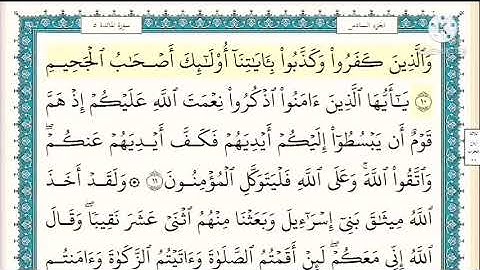 سورة المائدة ٥ الجزء السادس
وَالَّذِينَ كَفَرُواْ وَكَذَّبُواْ بِـَٔايَٰتِنَآ أُوْلَٰٓئِكَ أَصْحَٰبُ الْجَحِيمِ
١٠ يَٰٓأَيُّهَا الَّذِينَ ءَامَنُواْ اذْكُرُواْ نِعْمَتَ اللَّهِ عَلَيْكُمْ إِذْ هَمَّ
قَوْمٌ أَن يَبْسُطُوٓاْ إِلَيْكُمْ أَيْدِيَهُمْ فَكَفَّ أَيْدِيَهُمْ عَنكُمْ ۖ
وَاتَّقُواْ اللَّهَ ۚ وَعَلَى اللَّهِ فَلْيَتَوَكَّلِ الْمُؤْمِنُونَ ١١ ۞ وَلَقَدْ أَخَذَ
اللَّهُ مِيثَٰقَ بَنِىٓ إِسْرَٰٓءِيلَ وَبَعَثْنَا مِنْهُمُ اثْنَىْ عَشَرَ نَقِيبًا ۖ وَقَالَ
اللَّهُ إِنِّى مَعَكُمْ ۖ لَئِنْ أَقَمْتُمُ الصَّلَوٰةَ وَءَاتَيْتُمُ الزَّكَوٰةَ وَءَامَنتُم